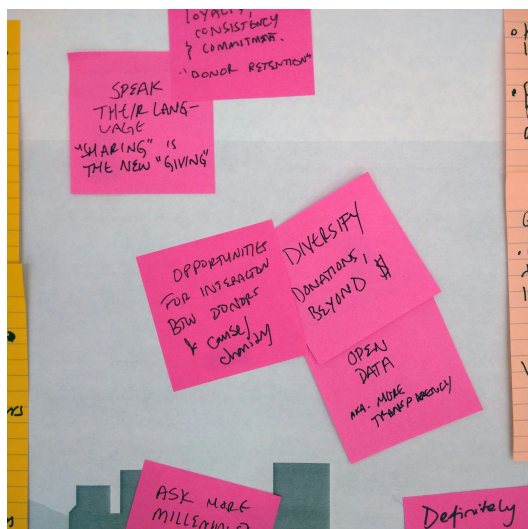 LOYALTY,
CONSISTENCY
& COMMITMENT.
"DONOR RETENTION"
SPEAK
THEIR LANG-
UAGE
"SHARING" IS
THE NEW "GIVING"
OPPORTUNITIES
FOR INTERACTION
BTW DONORS
& cause/
charity
DIVERSIFY
DONATIONS,
BEYOND $
OPEN
DATA
AKA. MORE
TRANSPARENCY
ASK MORE
MILLENNIALS
Definitely